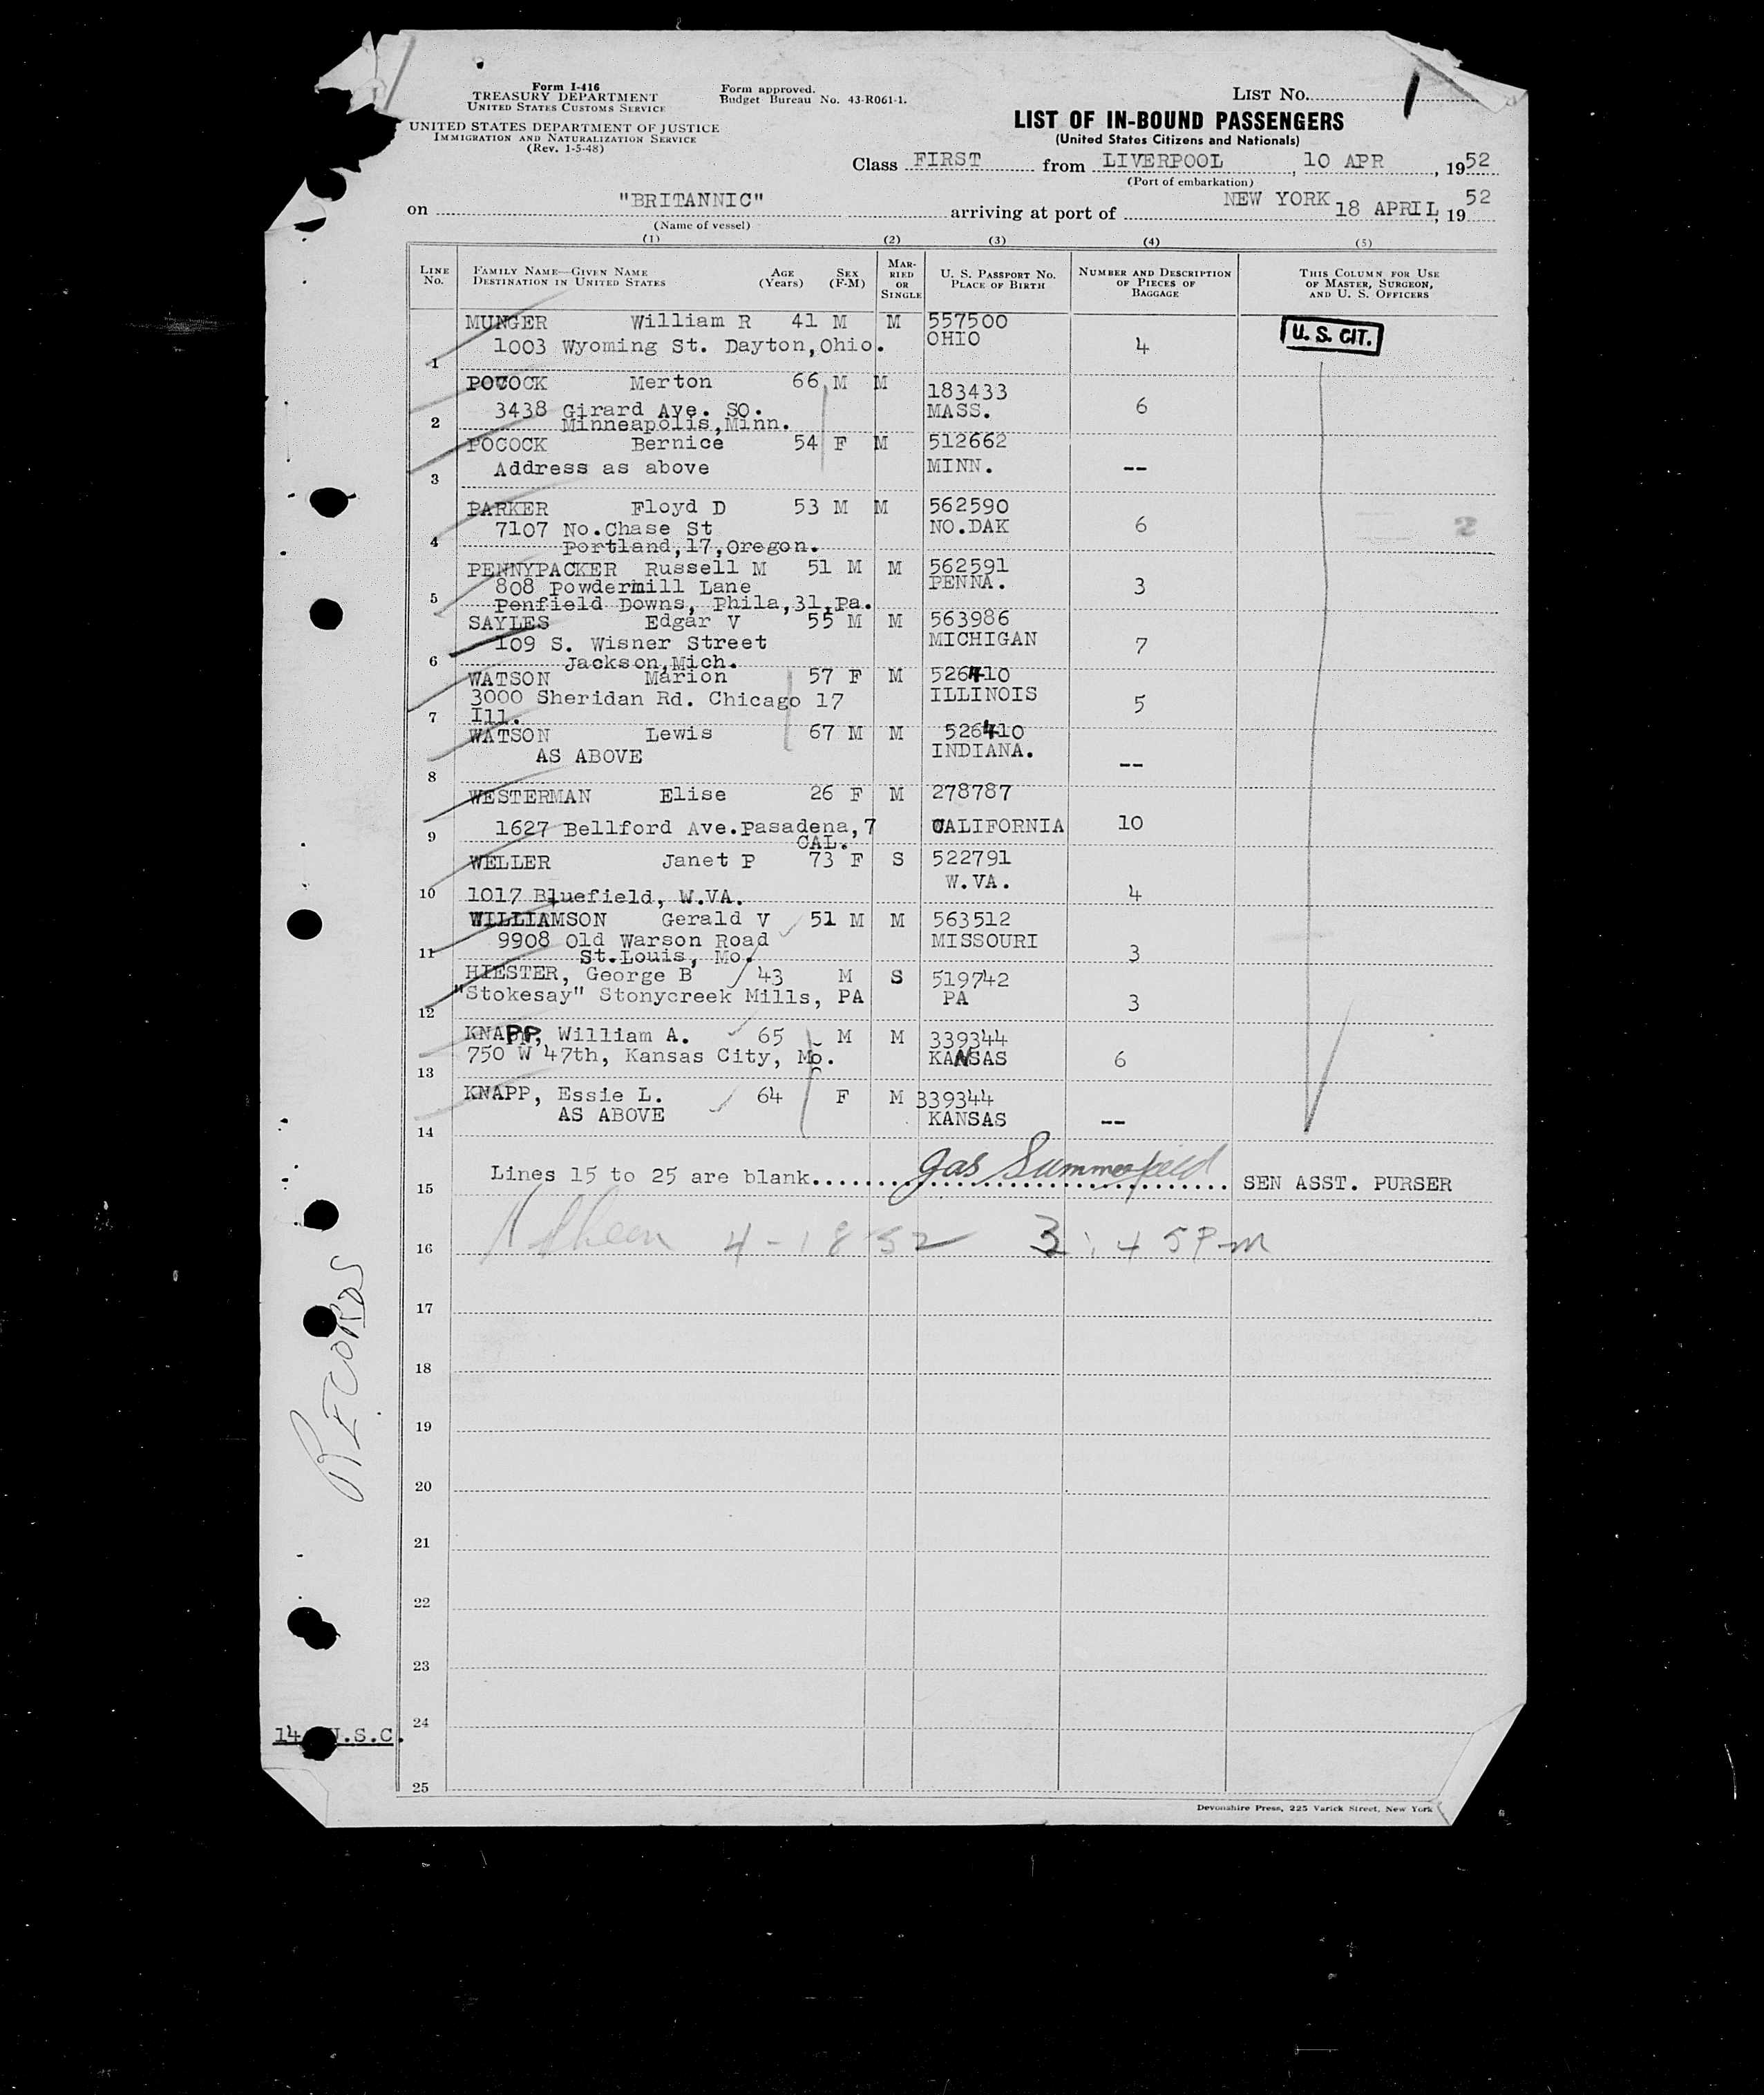 Form I-416
TREASURY DEPARTMENT
UNITED STATES CUSTOMS SERVICE
UNITED STATES DEPARTMENT OF JUSTICE
IMMIGRATION AND NATURALIZATION SERVICE
(Rev. 1-5-48)
Form approved.
Budget Bureau No. 43-R061-1.
LIST No. 1
LIST OF IN-BOUND PASSENGERS
(United States Citizens and Nationals)
Class FIRST from LIVERPOOL, 10 APR, 1952
(Port of embarkation)
on "BRITANNIC" arriving at port of NEW YORK 18 APRIL, 1952
(Name of vessel)
(1) (2) (3) (4) (5)
LINE No. FAMILY NAME—GIVEN NAME DESTINATION IN UNITED STATES AGE (Years) SEX (F-M) MARRIED OR SINGLE U. S. PASSPORT No. PLACE OF BIRTH NUMBER AND DESCRIPTION OF PIECES OF BAGGAGE THIS COLUMN FOR USE OF MASTER, SURGEON, AND U. S. OFFICERS
MUNGER William R 41 M M 557500 U. S. CIT.
1003 Wyoming St. Dayton,Ohio. OHIO 4
1
POCOCK Merton 66 M M 183433
3438 Girard Ave. SO. MASS. 6
2 Minneapolis,Minn.
POCOCK Bernice 54 F M 512662
Address as above MINN. --
3
PARKER Floyd D 53 M M 562590
7107 No.Chase St NO.DAK 6
4 Portland,17,Oregon.
PENNYPACKER Russell M 51 M M 562591
808 Powdermill Lane PENNA. 3
5 Penfield Downs, Phila,31,Pa.
SAYLES Edgar V 55 M M 563986
109 S. Wisner Street MICHIGAN 7
6 Jackson,Mich.
WATSON Marion 57 F M 526410
3000 Sheridan Rd. Chicago 17 ILLINOIS 5
7 Ill.
WATSON Lewis 67 M M 526410
AS ABOVE INDIANA. --
8
WESTERMAN Elise 26 F M 278787
1627 Bellford Ave.Pasadena,7 CALIFORNIA 10
9 CAL.
WELLER Janet P 73 F S 522791
W.VA.
10 1017 Bluefield, W.VA. 4
WILLIAMSON Gerald V 51 M M 563512
9908 Old Warson Road MISSOURI 3
11 St.Louis, Mo.
HIESTER, George B 43 M S 519742
"Stokesay" Stonycreek Mills, PA PA 3
12
KNAPP, William A. 65 M M 339344
750 W 47th, Kansas City, Mo. KANSAS 6
13
KNAPP, Essie L. 64 F M 339344
AS ABOVE KANSAS --
14
15 Lines 15 to 25 are blank Jas Summerfield SEN ASST. PURSER
16 4-18 52 3:45 PM
17
18
19
20
21
22
23
24
25
RECORDS
14 U.S.C.
Devonshire Press, 225 Varick Street, New York